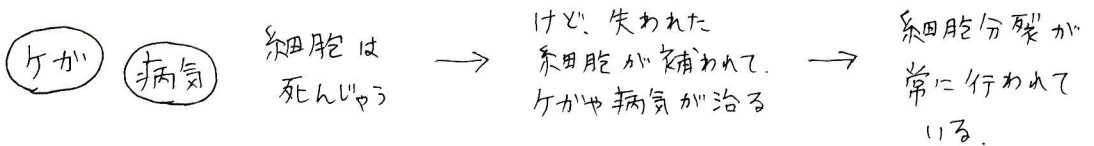 ケガ
病気
細胞は
死んじゃう
→
けど、失われた
細胞が補われて、
ケガや病気が治る
→
細胞分裂が
常に行われて
いる。